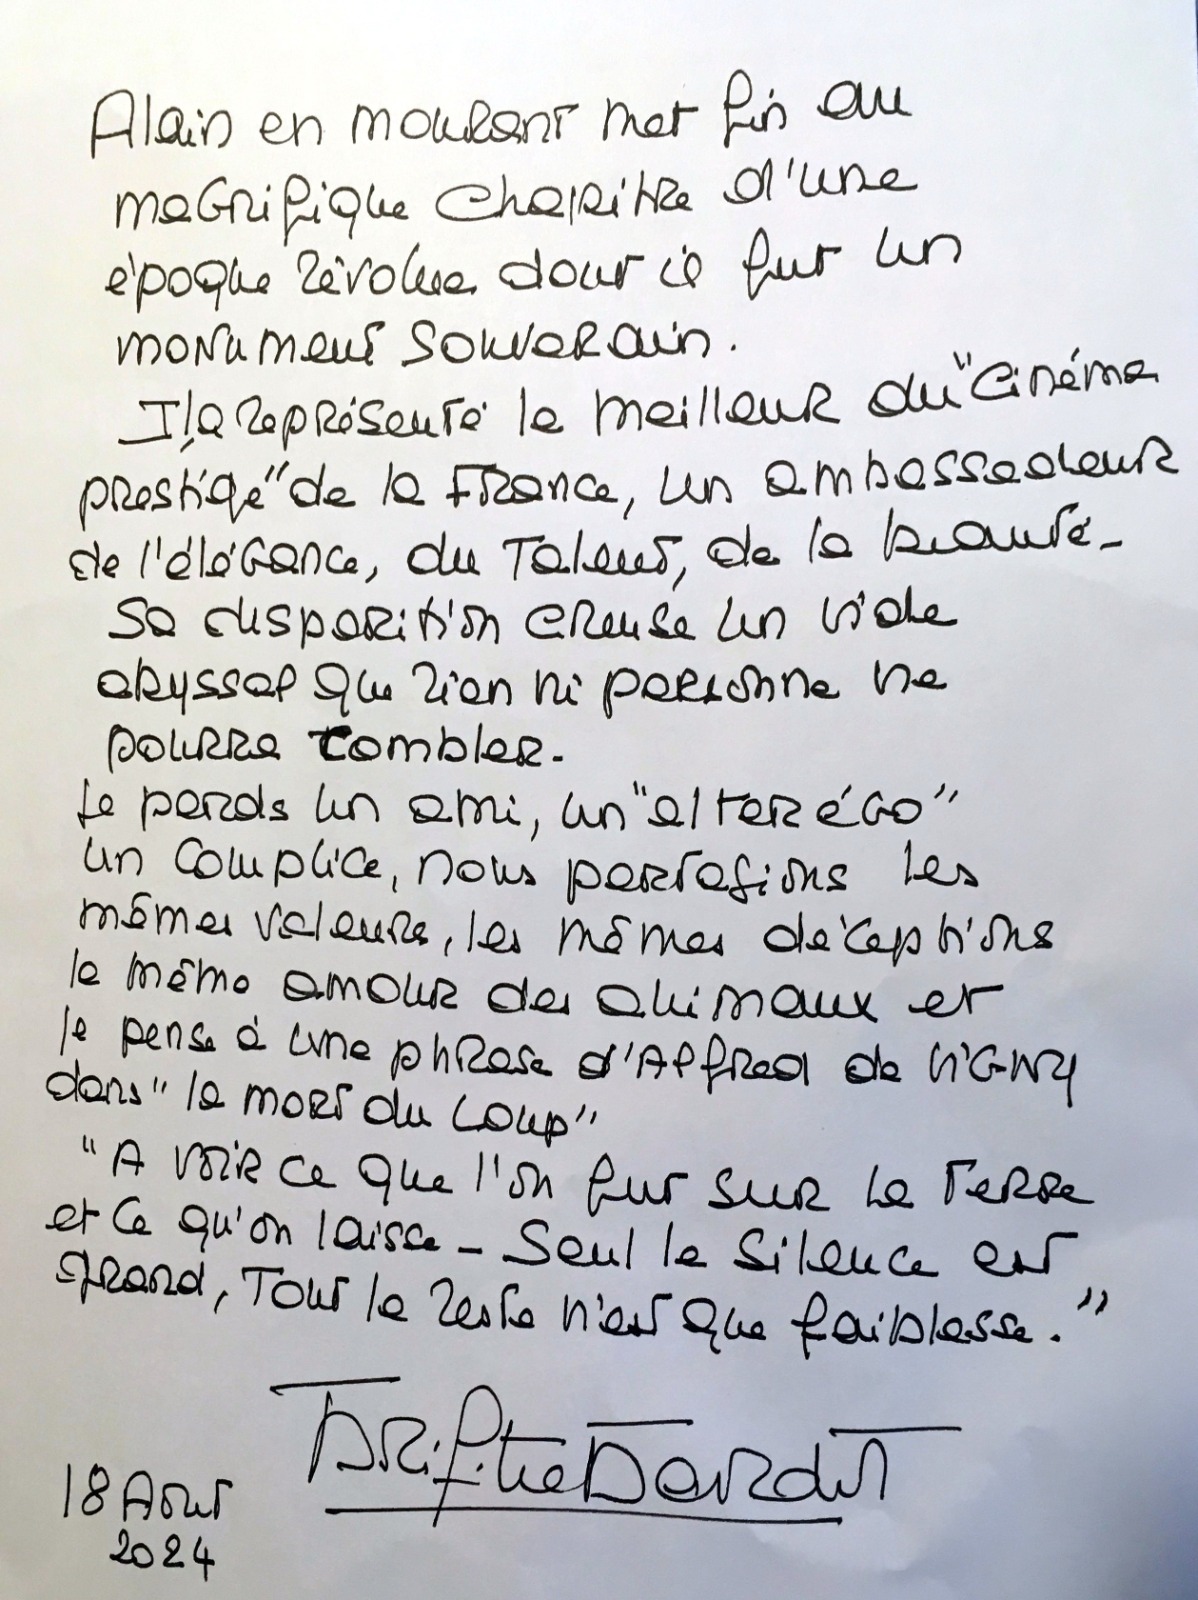 Alain en mourant met fin au
magnifique chapitre d'une
époque révolue dont il fut un
monument souverain.
Il a représenté le meilleur du "cinéma
prestige" de la France, un ambassadeur
de l'élégance, du talent, de la beauté -
Sa disparition creuse un vide
abyssal que rien ni personne ne
pourra combler -
Je perds un ami, un "alter égo"
un complice, nous partagions les
mêmes valeurs, les mêmes déceptions
le même amour des animaux et
je pense à une phrase d'Alfred de Vigny
dans "la mort du Loup"
"A voir ce que l'on fut sur la Terre
et ce qu'on laisse - Seul le silence est
grand, Tout le reste n'est que faiblesse."
Brigitte Bardot
18 Août
2024